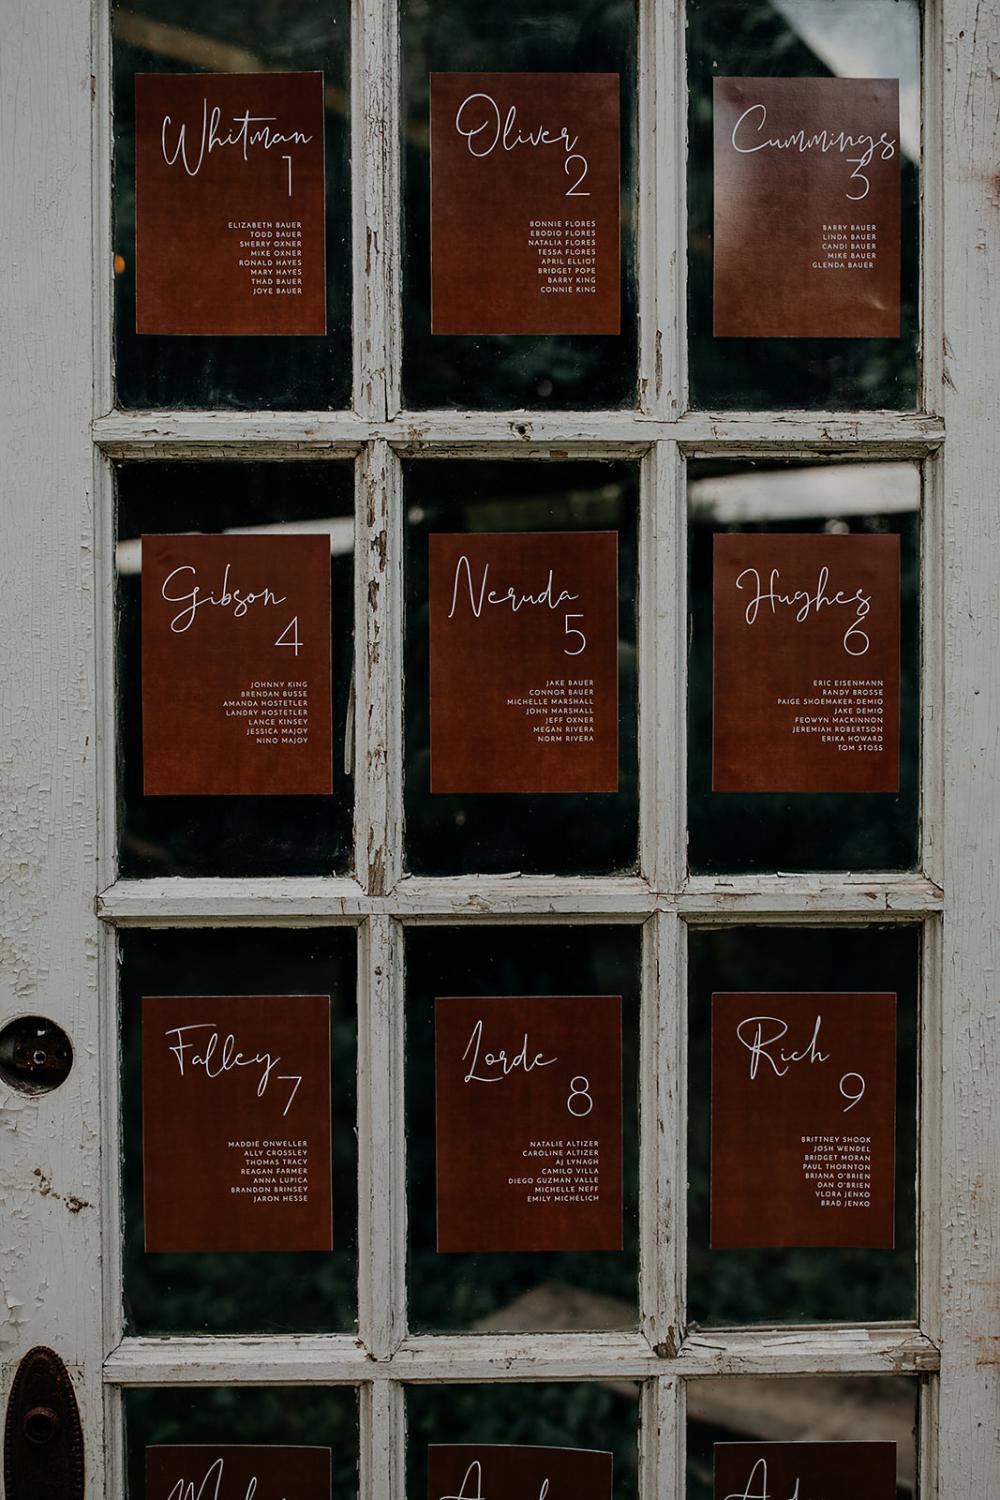 Whitman
1
ELIZABETH BAUER
TODD BAUER
SHERRY OXNER
MIKE OXNER
RONALD HAYES
MARY HAYES
THAD BAUER
JOYE BAUER
Oliver
2
BONNIE FLORES
EBODIO FLORES
NATALIA FLORES
TESSA FLORES
APRIL ELLIOT
BRIDGET POPE
BARRY KING
CONNIE KING
Cummings
3
BARRY BAUER
LINDA BAUER
CANDI BAUER
MIKE BAUER
GLENDA BAUER
Gibson
4
JOHNNY KING
BRENDAN BUSSE
AMANDA HOSTETLER
LANDRY HOSTETLER
LANCE KINSEY
JESSICA MAJOY
NINO MAJOY
Neruda
5
JAKE BAUER
CONNOR BAUER
MICHELLE MARSHALL
JOHN MARSHALL
JEFF OXNER
MEGAN RIVERA
NORM RIVERA
Hughes
6
ERIC EISENMANN
RANDY BROSSE
PAIGE SHOEMAKER-DEMIO
JAKE DEMIO
FEOWYN MACKINNON
JEREMIAH ROBERTSON
ERIKA HOWARD
TOM STOSS
Falley
7
MADDIE ONWELLER
ALLY CROSSLEY
THOMAS TRACY
REAGAN FARMER
ANNA LUPICA
BRANDON BRINSEY
JARON HESSE
Lorde
8
NATALIE ALTIZER
CAROLINE ALTIZER
AJ LYNAGH
CAMILO VILLA
DIEGO GUZMAN VALLE
MICHELLE NEFF
EMILY MICHELICH
Rich
9
BRITTNEY SHOOK
JOSH WENDEL
BRIDGET MORAN
PAUL THORNTON
BRIANA O'BRIEN
DAN O'BRIEN
VLORA JENKO
BRAD JENKO